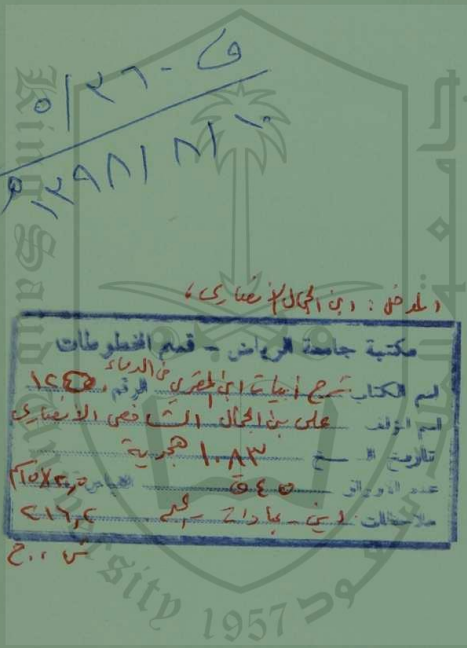 ف - ٥/٢٦
١٣٩٨/٨/١٠ هـ
المدخل : ابن الجمال الأنصاري ،
مكتبة جامعة الرياض - قسم المخطوطات
اسم الكتاب شرح أبيات ابن المقري في الدماء الرقم
اسم المؤلف علي بن الجمال الشافعي الأنصاري
تاريخ النسخ ١٠٨٣ هجرية
عدد الأوراق ٤٥ ق
ملاحظات ٢١٦٫٢
King Saud University
1957